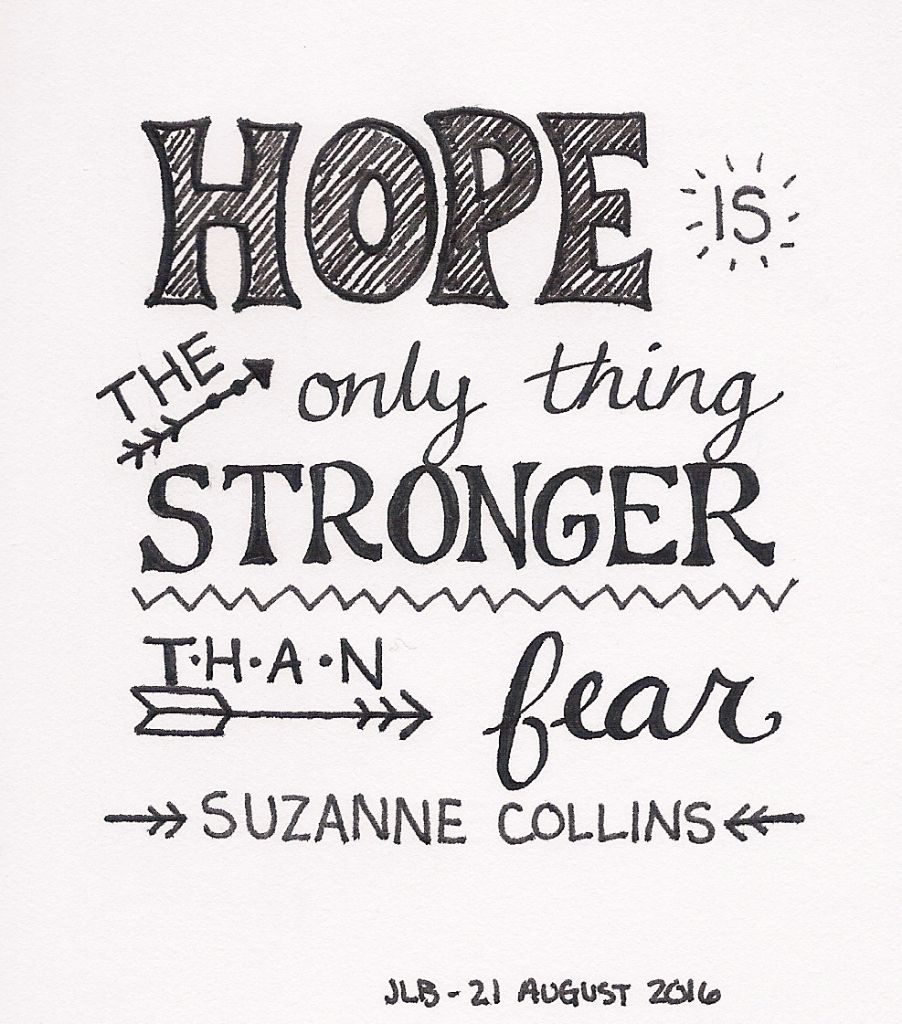 HOPE IS
THE only thing
STRONGER
T·H·A·N fear
SUZANNE COLLINS
JLB - 21 AUGUST 2016